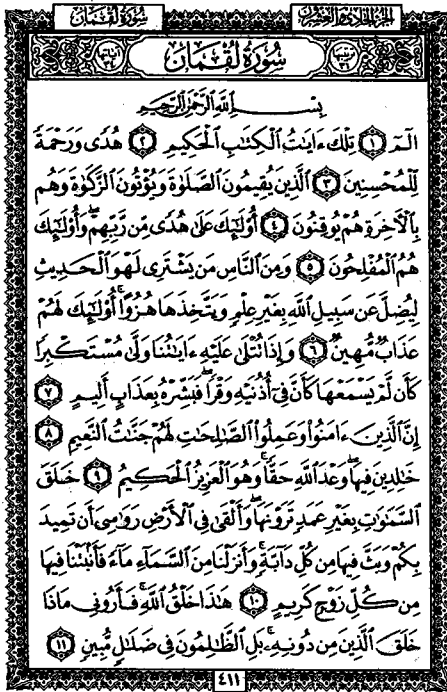 سُورَةُ لُقْمَان الجزء الحادي والعشرون
ترتيبها ٣١ سُورَةُ لُقْمَانَ آياتها ٣٤
بِسْمِ اللَّهِ الرَّحْمَٰنِ الرَّحِيمِ
الٓمٓ ١ تِلْكَ ءَايَٰتُ ٱلْكِتَٰبِ ٱلْحَكِيمِ ٢ هُدًى وَرَحْمَةً
لِّلْمُحْسِنِينَ ٣ ٱلَّذِينَ يُقِيمُونَ ٱلصَّلَوٰةَ وَيُؤْتُونَ ٱلزَّكَوٰةَ وَهُم
بِٱلْأَخِرَةِ هُمْ يُوقِنُونَ ٤ أُو۟لَٰٓئِكَ عَلَىٰ هُدًى مِّن رَّبِّهِمْ وَأُو۟لَٰٓئِكَ
هُمُ ٱلْمُفْلِحُونَ ٥ وَمِنَ ٱلنَّاسِ مَن يَشْتَرِى لَهْوَ ٱلْحَدِيثِ
لِيُضِلَّ عَن سَبِيلِ ٱللَّهِ بِغَيْرِ عِلْمٍ وَيَتَّخِذَهَا هُزُوًا أُو۟لَٰٓئِكَ لَهُمْ
عَذَابٌ مُّهِينٌ ٦ وَإِذَا تُتْلَىٰ عَلَيْهِ ءَايَٰتُنَا وَلَّىٰ مُسْتَكْبِرًا
كَأَن لَّمْ يَسْمَعْهَا كَأَنَّ فِىٓ أُذُنَيْهِ وَقْرًا فَبَشِّرْهُ بِعَذَابٍ أَلِيمٍ ٧
إِنَّ ٱلَّذِينَ ءَامَنُوا۟ وَعَمِلُوا۟ ٱلصَّٰلِحَٰتِ لَهُمْ جَنَّٰتُ ٱلنَّعِيمِ ٨
خَٰلِدِينَ فِيهَا وَعْدَ ٱللَّهِ حَقًّا وَهُوَ ٱلْعَزِيزُ ٱلْحَكِيمُ ٩ خَلَقَ
ٱلسَّمَٰوَٰتِ بِغَيْرِ عَمَدٍ تَرَوْنَهَا وَأَلْقَىٰ فِى ٱلْأَرْضِ رَوَٰسِىَ أَن تَمِيدَ
بِكُمْ وَبَثَّ فِيهَا مِن كُلِّ دَآبَّةٍ وَأَنزَلْنَا مِنَ ٱلسَّمَآءِ مَآءً فَأَنۢبَتْنَا فِيهَا
مِن كُلِّ زَوْجٍ كَرِيمٍ ١٠ هَٰذَا خَلْقُ ٱللَّهِ فَأَرُونِى مَاذَا
خَلَقَ ٱلَّذِينَ مِن دُونِهِۦ بَلِ ٱلظَّٰلِمُونَ فِى ضَلَٰلٍ مُّبِينٍ ١١
٤١١